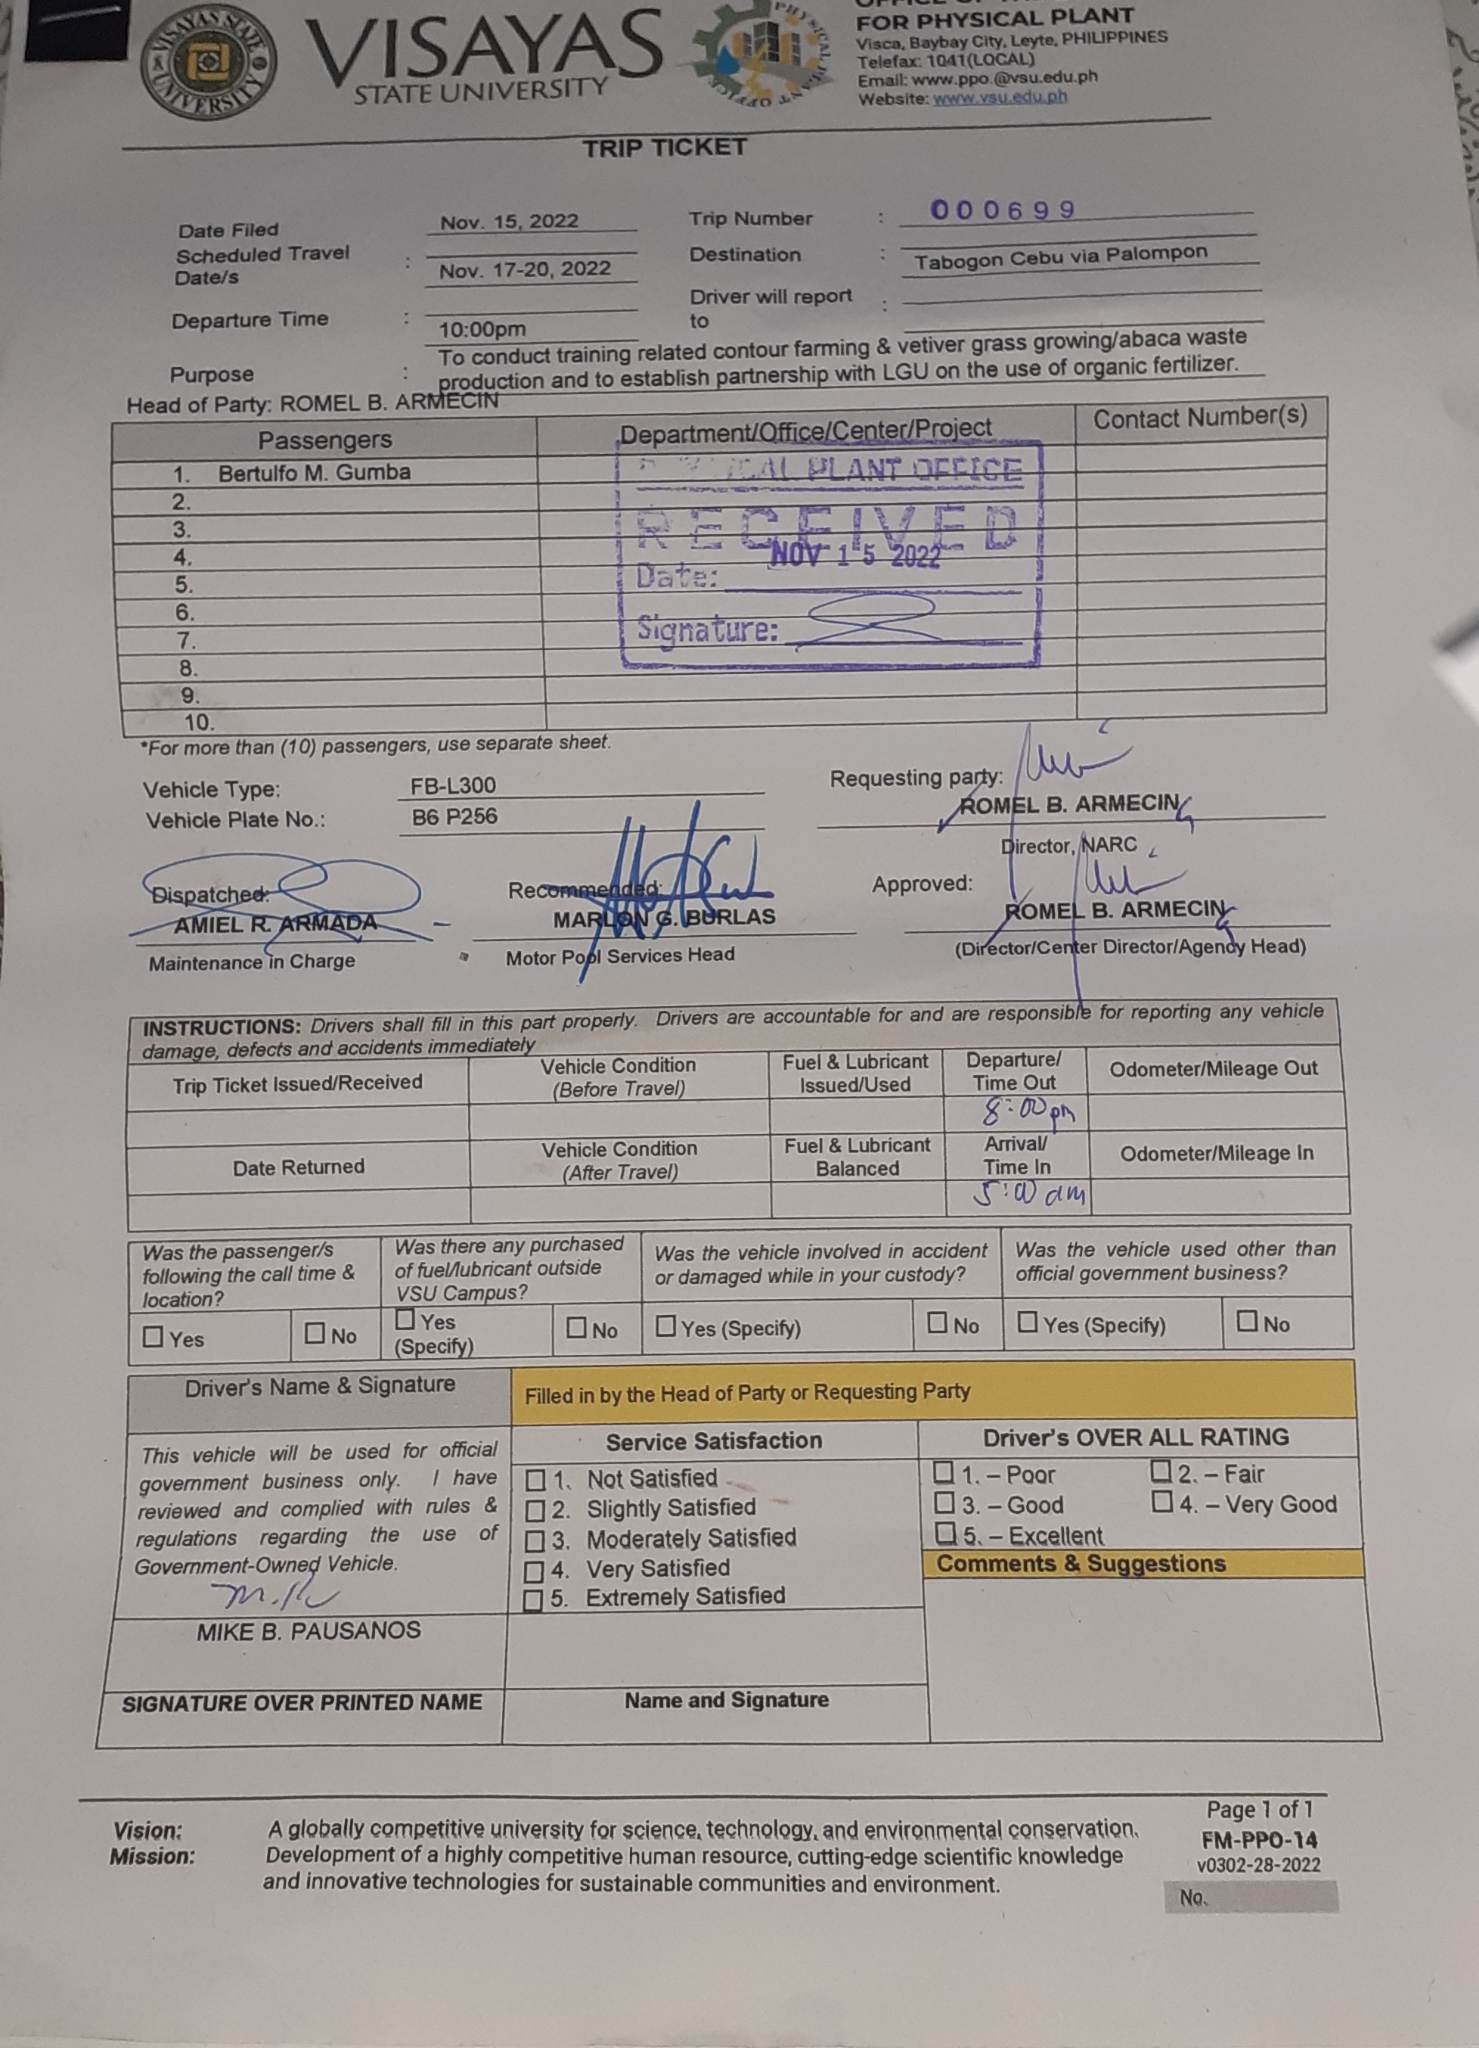 VISAYAS STATE UNIVERSITY
VISAYAS
STATE UNIVERSITY
PHYSICAL PLANT OFFICE
FOR PHYSICAL PLANT
Visca, Baybay City, Leyte, PHILIPPINES
Telefax: 1041(LOCAL)
Email: www.ppo.@vsu.edu.ph
Website: www.vsu.edu.ph
TRIP TICKET
Date Filed Nov. 15, 2022 Trip Number : 000699
Scheduled Travel Date/s : Nov. 17-20, 2022 Destination : Tabogon Cebu via Palompon
Departure Time : 10:00pm Driver will report to :
Purpose : To conduct training related contour farming & vetiver grass growing/abaca waste
production and to establish partnership with LGU on the use of organic fertilizer.
Head of Party: ROMEL B. ARMECIN
Passengers Department/Office/Center/Project Contact Number(s)
1. Bertulfo M. Gumba
2.
3.
4.
5.
6.
7.
8.
9.
10.
PLANT OFFICE
RECEIVED
NOV 15 2022
Date:
Signature:
*For more than (10) passengers, use separate sheet.
Vehicle Type: FB-L300 Requesting party:
Vehicle Plate No.: B6 P256 ROMEL B. ARMECIN
Director, NARC
Dispatched: Recommended: Approved:
AMIEL R. ARMADA MARLON G. BURLAS ROMEL B. ARMECIN
Maintenance in Charge Motor Pool Services Head (Director/Center Director/Agency Head)
INSTRUCTIONS: Drivers shall fill in this part properly. Drivers are accountable for and are responsible for reporting any vehicle
damage, defects and accidents immediately
Trip Ticket Issued/Received Vehicle Condition (Before Travel) Fuel & Lubricant Issued/Used Departure/ Time Out Odometer/Mileage Out
8:00 pm
Date Returned Vehicle Condition (After Travel) Fuel & Lubricant Balanced Arrival/ Time In Odometer/Mileage In
5:00 am
Was the passenger/s following the call time & location? Was there any purchased of fuel/lubricant outside VSU Campus? Was the vehicle involved in accident or damaged while in your custody? Was the vehicle used other than official government business?
Yes No Yes (Specify) No Yes (Specify) No Yes (Specify) No
Driver's Name & Signature Filled in by the Head of Party or Requesting Party
This vehicle will be used for official
government business only. I have
reviewed and complied with rules &
regulations regarding the use of
Government-Owned Vehicle.
MIKE B. PAUSANOS
SIGNATURE OVER PRINTED NAME
Service Satisfaction
1. Not Satisfied
2. Slightly Satisfied
3. Moderately Satisfied
4. Very Satisfied
5. Extremely Satisfied
Name and Signature
Driver's OVER ALL RATING
1. – Poor 2. – Fair
3. – Good 4. – Very Good
5. – Excellent
Comments & Suggestions
Vision: A globally competitive university for science, technology, and environmental conservation.
Mission: Development of a highly competitive human resource, cutting-edge scientific knowledge
and innovative technologies for sustainable communities and environment.
Page 1 of 1
FM-PPO-14
v0302-28-2022
No.